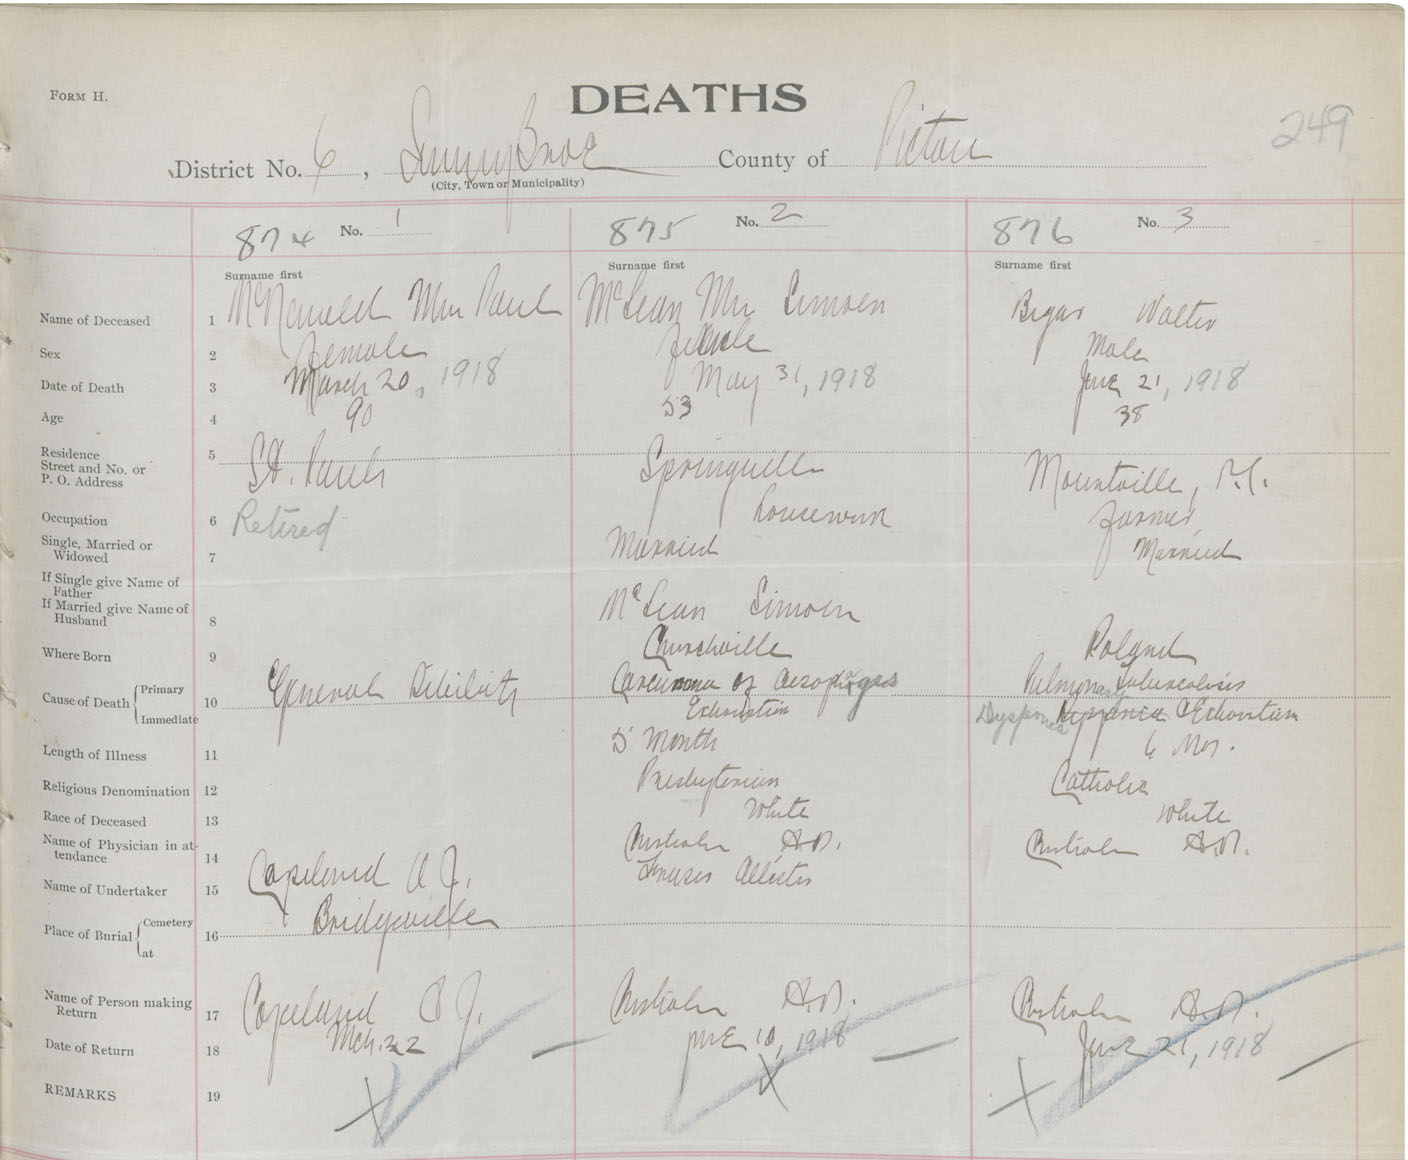 FORM H.
DEATHS
249
District No. 6, SunnyBrae County of Pictou
(City, Town or Municipality)
874 No. 1
875 No. 2
876 No. 3
Surname first
Surname first
Surname first
Name of Deceased 1 McDonald Mrs Paul McLean Mrs Simon Bigar Walter
Sex 2 Female Female Male
Date of Death 3 March 20, 1918 May 31, 1918 June 21, 1918
Age 4 90 53 38
Residence
Street and No. or
P. O. Address 5 St. Pauls Springville Mountville, P.C.
Occupation 6 Retired housework farmer
Single, Married or
Widowed 7 Married Married
If Single give Name of
Father
If Married give Name of
Husband 8 McLean Simon
Where Born 9 Churchville Poland
Cause of Death Primary 10 General Debility Carcinoma of Aesophagus Pulmonary Tuberculosis
Immediate Exhaustion Dyspnoea & Exhaustion
Length of Illness 11 5 Month 6 Mos.
Religious Denomination 12 Presbyterian Catholic
Race of Deceased 13 White White
Name of Physician in at-
tendance 14 A.D. A.D.
Name of Undertaker 15 Copeland A J. Fraser Allister
Place of Burial Cemetery 16 Bridgeville
at
Name of Person making
Return 17 Copeland A J. A.D. A.D.
Date of Return 18 Mch. 22 June 10, 1918 June 21, 1918
REMARKS 19